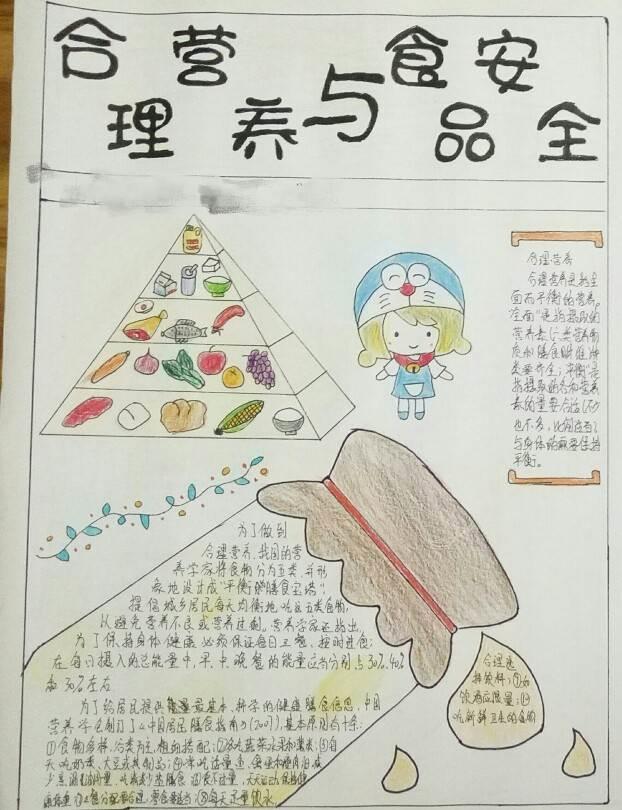 合理营养与食品安全
合理营养
合理营养是指全
面而平衡的营养。
"全面"是指摄取的
营养素(六类营养物
质和膳食纤维)种
类要齐全;平衡是
指摄取的各种营养
素的量要合适(不少
也不多,比例适当)
与身体的需要保持
平衡。
为了做到
合理营养,我国的营
养学家将食物分为五类,并形
象地设计成"平衡膳食宝塔",
提倡城乡居民每天均衡地吃这五类食物,
以避免营养不良或营养过剩。营养学家还指出,
为了保持身体健康,必须保证每日三餐,按时进食;
在每日摄入的总能量中,早、中、晚餐的能量应当分别占30%、40%
和30%左右
为了给居民提供最基本、科学的健康膳食信息,中国
营养学会制订了《中国居民膳食指南》(2007),基本原则有十条:
①食物多样,分类为主,粗细搭配;②多吃蔬菜水果和薯类;③每
天吃奶类、大豆或其制品;④常吃适量鱼
少盐
合理选
择饮料;①如
饮酒应限量;⑩
吃新鲜卫生的食物